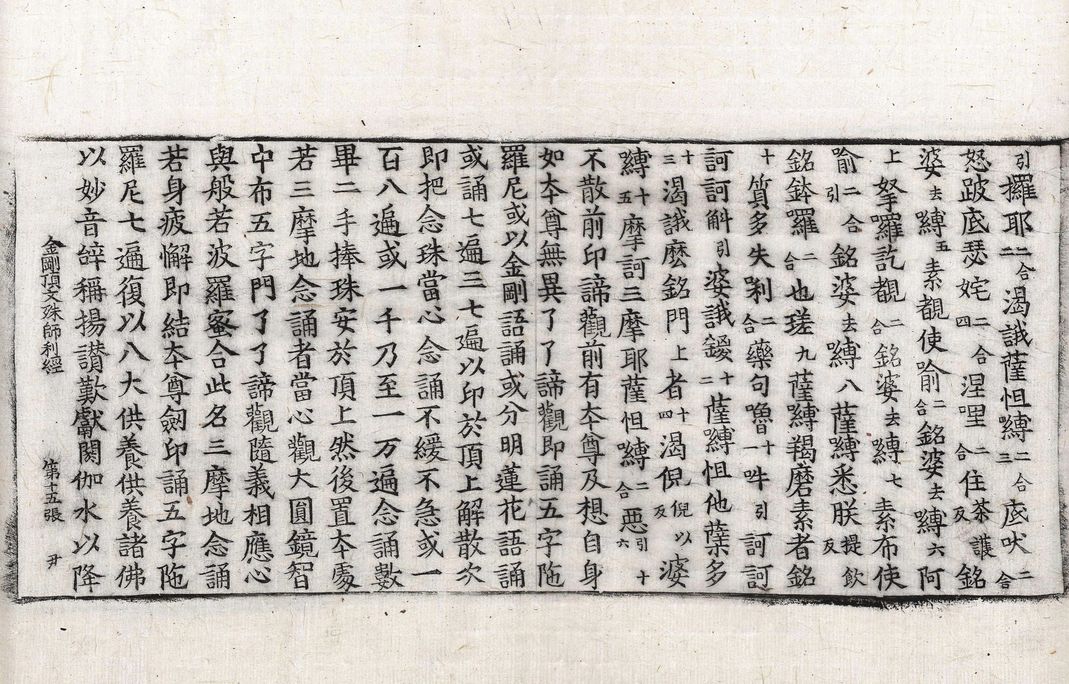 引攞耶二合渴誐薩怛嚩三二合底吠二合
怒跛底瑟姹四二合涅哩二合住茶護反銘
婆去嚩五素覩使喻二合銘婆去嚩六阿
上拏羅訖覩二合銘婆去嚩七素布使
喻二合引銘婆去嚩八薩嚩悉朕提飲反
銘鉢羅二合也瑳九薩嚩羯磨素者銘
十質多失唎二合藥句嚕十一吽引訶訶
訶訶斛引婆誐鑁十二薩嚩怛他蘖多
十三渴誐麽銘門上者十四渴倪倪以反婆
嚩十五摩訶三摩耶薩怛嚩二合惡引十六
不散前印諦觀前有本尊及想自身
如本尊無異了了諦觀即誦五字陁
羅尼或以金剛語誦或分明蓮花語誦
或誦七遍三七遍以印於頂上解散次
即把念珠當心念誦不緩不急或一
百八遍或一千乃至一万遍念誦數
畢二手捧珠安於頂上然後置本處
若三摩地念誦者當心觀大圓鏡智
中布五字門了了諦觀隨義相應心
與般若波羅蜜合此名三摩地念誦
若身疲懈即結本尊劒印誦五字陁
羅尼七遍復以八大供養供養諸佛
以妙音辝稱揚讃歎獻閼伽水以降
金剛頂文殊師利經 第十五張 尹